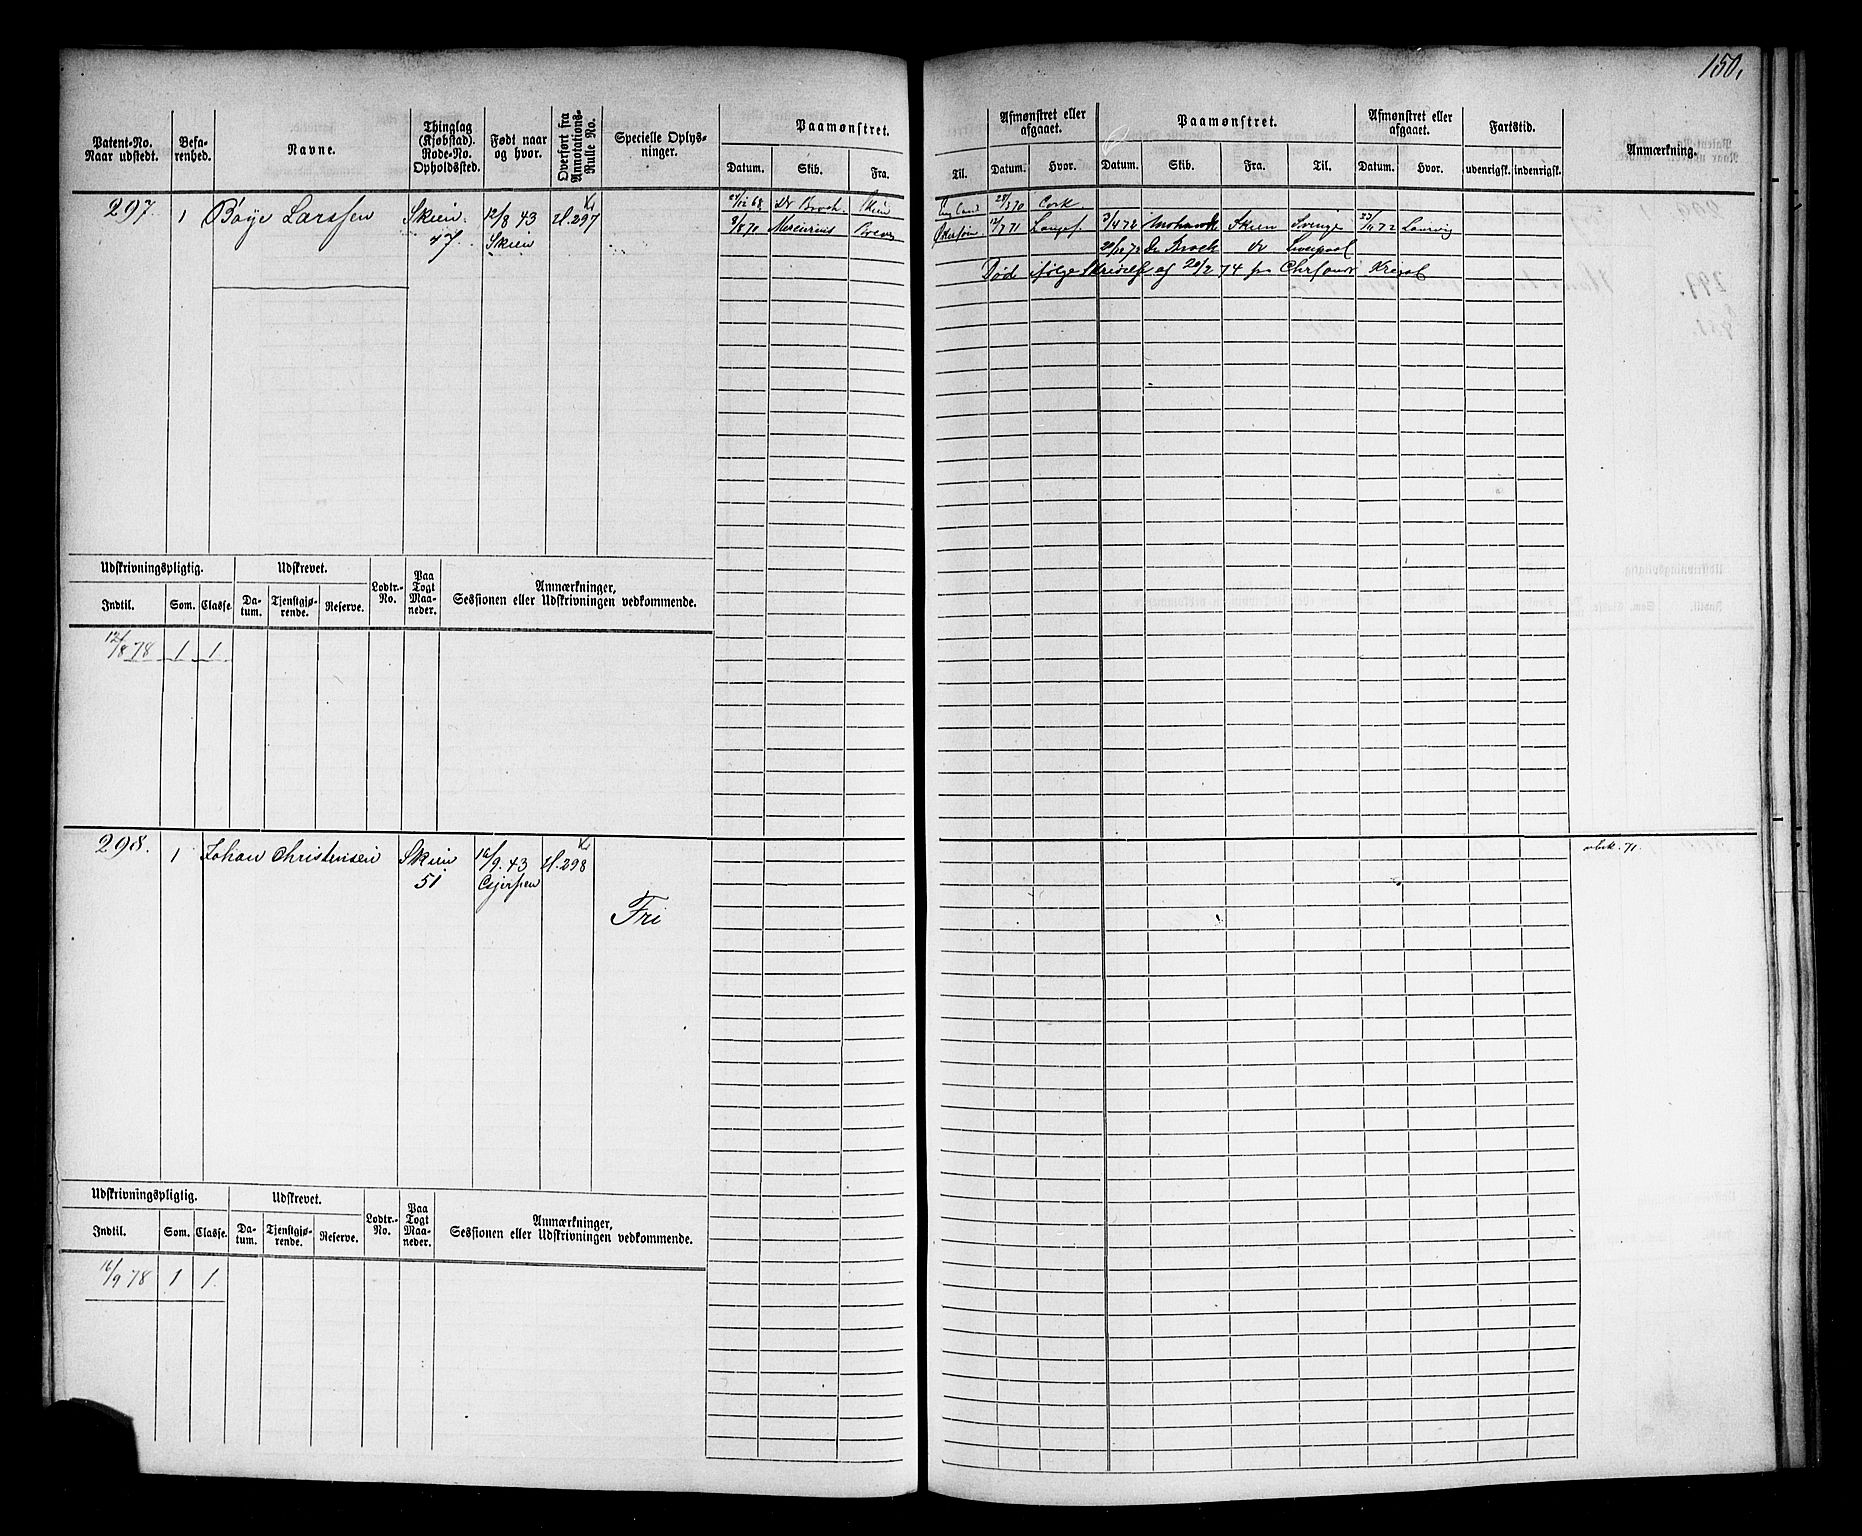 150.
Patent-No. Naar udstedt.
Befarenhed.
Navne.
Thinglag (Kjøbstad). Rode-No. Opholdssted.
Født naar og hvor.
Overført fra Annotations-Rulle No.
Specielle Oplysninger.
Paamønstret.
Datum. Skib. Fra.
Til.
Afmønstret eller afgaaet.
Datum. Hvor.
Paamønstret.
Datum. Skib. Fra. Til.
Afmønstret eller afgaaet.
Datum. Hvor.
Fartstid.
udenrigsk. indenrigsk.
Anmærkning.
297. 1 Böye Larssen Skien. 12/8 43 297
47. Skien
Dr Broch. Skien England 70 Cork
3/8 70 Mercurius Brevig 12/7 71 3/4 72 Mohawk Skien Svinge 72 Laurvig
20/12 72 Dr Broch do Liverpool
Død ifølge Skrivelse af 20/2 74 fra
Udskrivningspligtig. Udskrevet. Lodtr.-No. Paa Togt Maaneder. Anmærkninger, Sessionen eller Udskrivningen vedkommende.
Indtil. Som. Classe. Datum. Tjenstgjørende. Reserve.
12/8 78 1 1
298. 1 Johan Christensen Skien 16/9. 43 298
51 Gjerpen
Fri
71.
Udskrivningspligtig. Udskrevet. Lodtr.-No. Paa Togt Maaneder. Anmærkninger, Sessionen eller Udskrivningen vedkommende.
Indtil. Som. Classe. Datum. Tjenstgjørende. Reserve.
16/9 78 1 1.